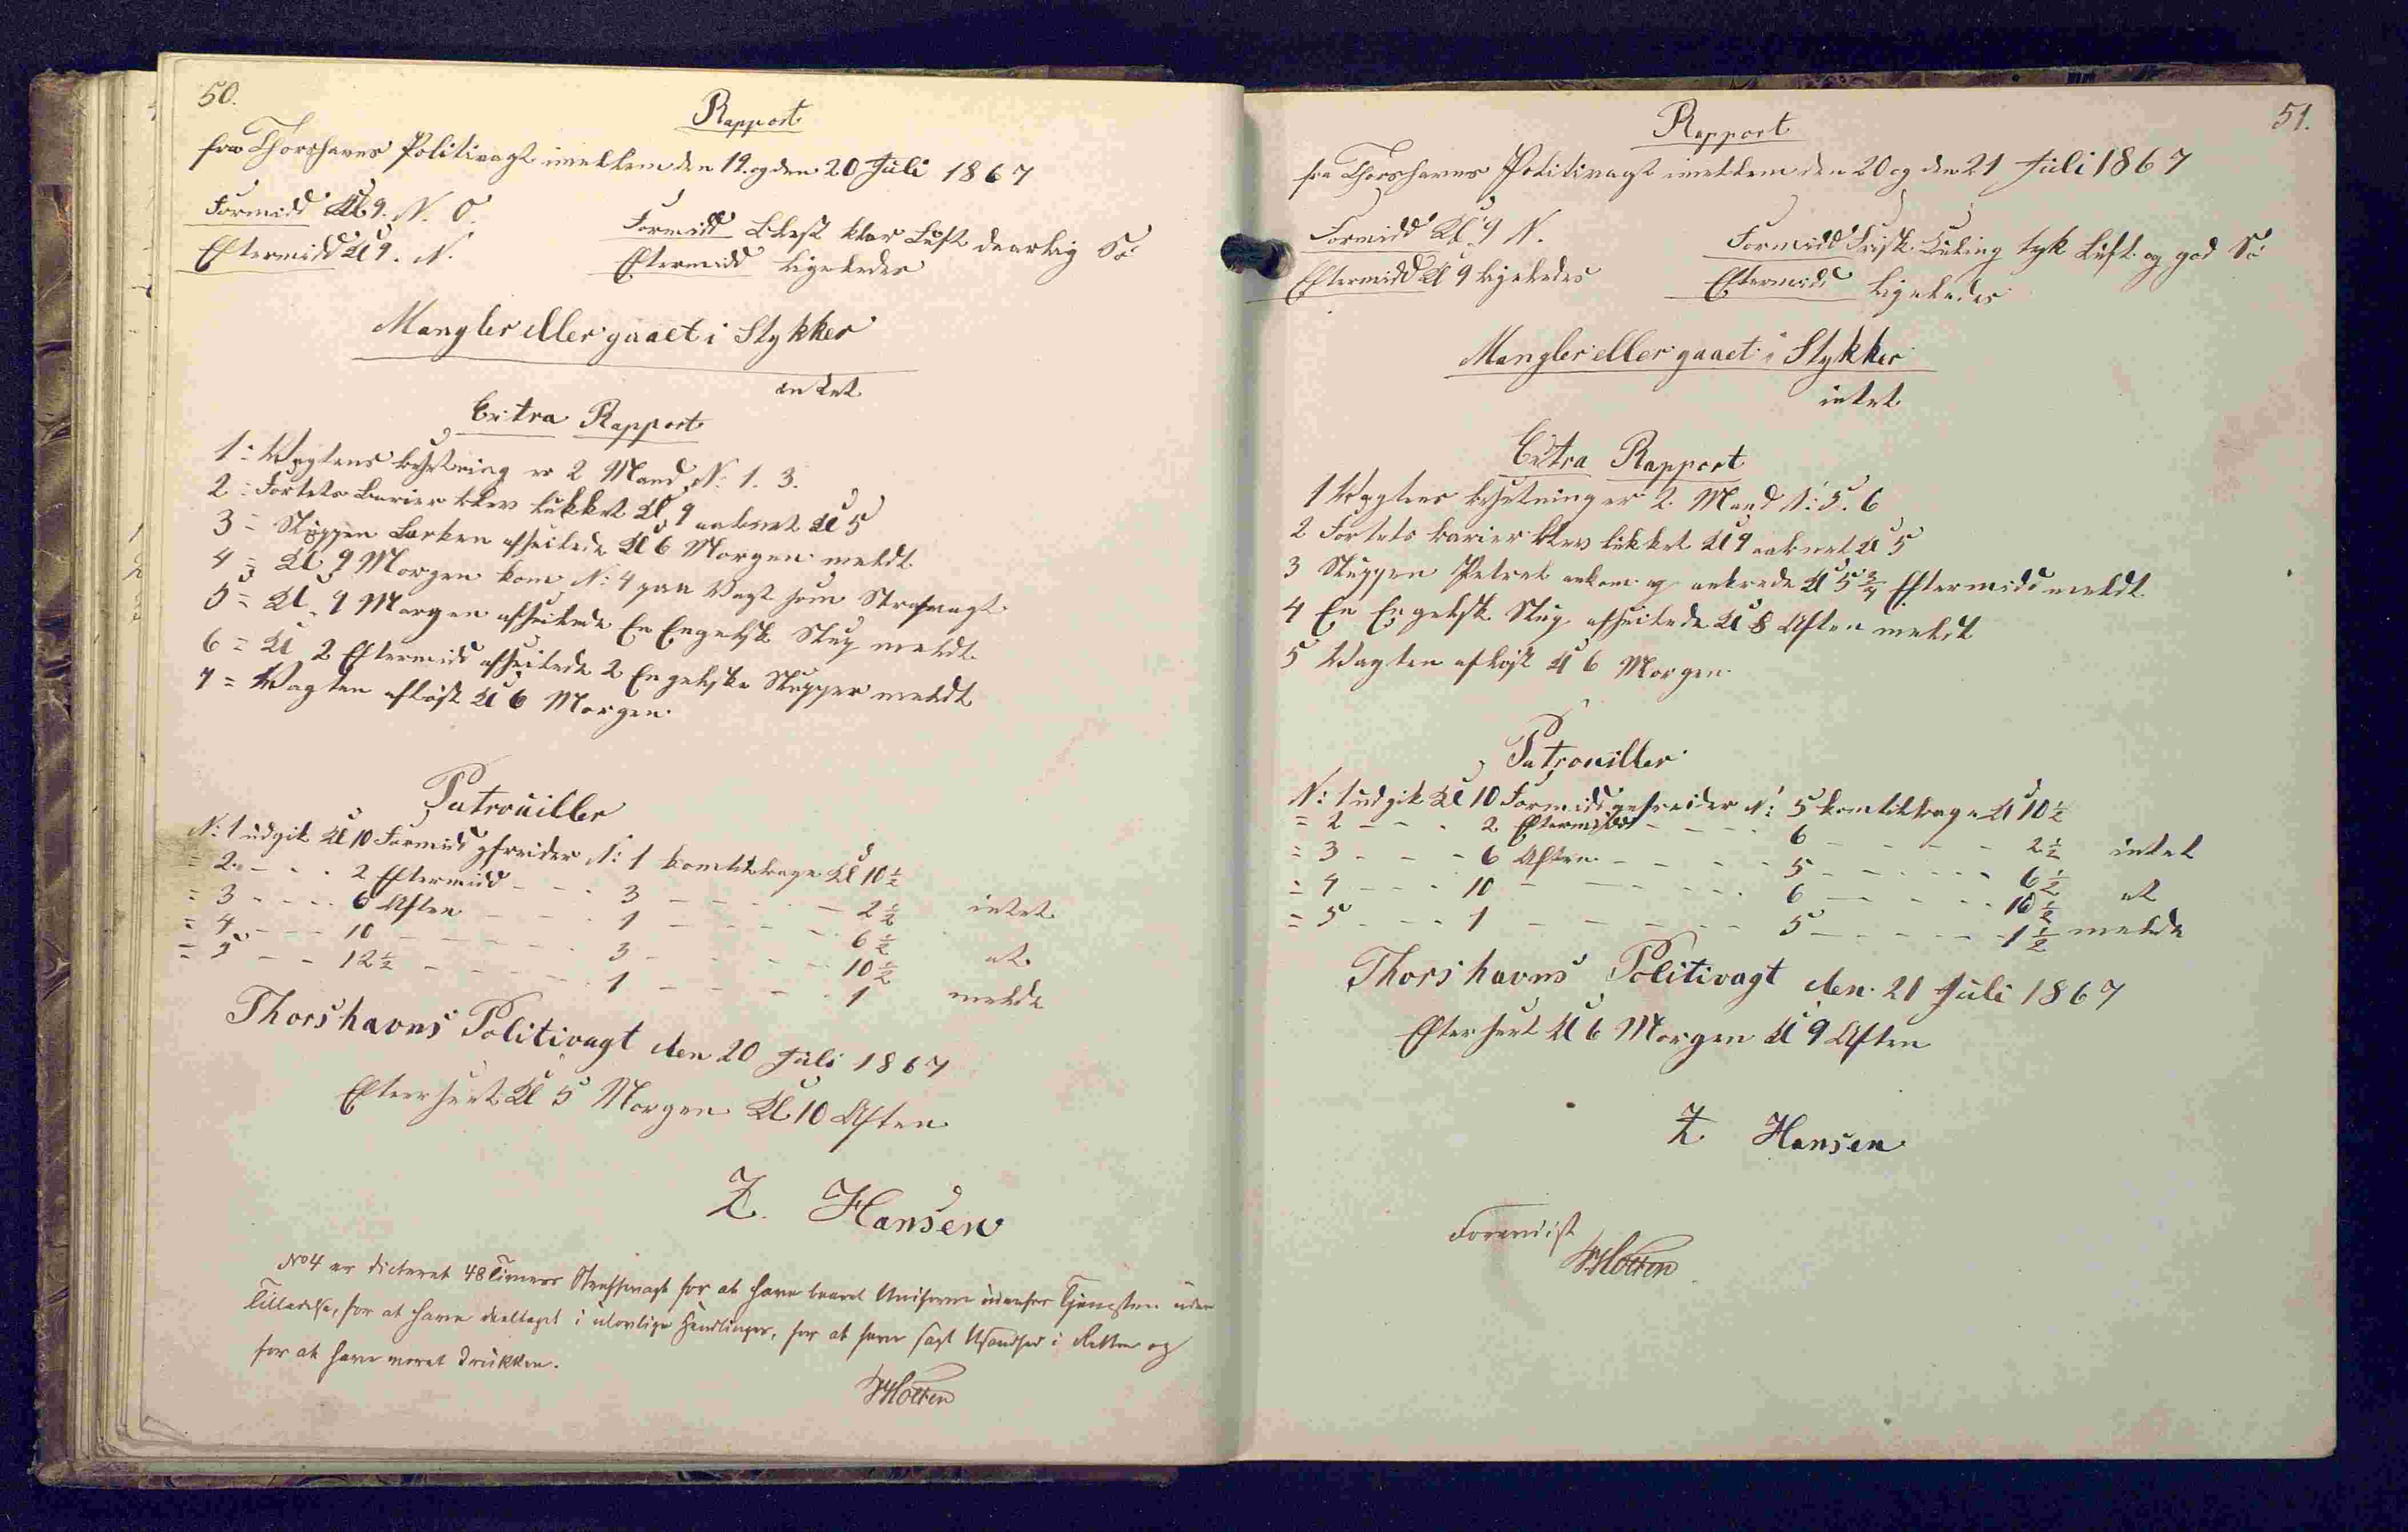 50.
Rapport
fra Thorshavns Politivagt imellem den 19. og den 20 Juli 1867
Formidd Kl 9. N. O.
Eftermidd Kl 9. N.
Formidd Blæst klar Luft daarlig Sö
Eftermidd ligeledes
Mangler eller gaaet i Stykker
intet
Extra Rapport
1: Vagtens besætning er 2 Mand N: 1. 3.
2: Fortets Barier blev lukket Kl 9 aabnet Kl 5
3= Sluppen Larken afseilede Kl 6 Morgen meldt
4= Kl 9 Morgen kom N: 4 paa Vagt som Strafvagt
5= Kl. 9 Morgen afseilede En Engelsk Slup meldt
6= Kl 2 Eftermidd afseilede 2 Engelske Slupper meldt
7= Vagten aflöst Kl 6 Morgen
Patrouiller
N: 1 udgik Kl 10 Formidd gefreider N: 1 kom tilbage Kl 10 1/2
= 2 - - - 2 Eftermidd - - - 3 - - - - 2 1/2 intet
= 3 - - - 6 Aften - - - 1 - - - - 6 1/2
= 4 - - - 10 - - - - 3 - - - - 10 1/2 at
= 5 - - - 12 1/2 - - - - 1 - - - - 1 melde
Thorshavns Politivagt den 20 Juli 1867
Efterseet Kl 5 Morgen Kl 10 Aften
Z. Hansen
No 4 er dicteret 48 Timers Straffevagt for at have baaret Uniform udenfor Tjenesten uden
Tilladelse, for at have deeltaget i ulovlige Handlinger, for at have sagt Usandhed i Retten og
for at have været drukken.
HHolten
51.
Rapport
fra Thorshavns Politivagt imellem den 20 og den 21 Juli 1867
Formidd Kl 9 N.
Eftermidd Kl 9 ligeledes
Formidd Frisk Kuling tyk Luft og god Sö
Eftermidd ligeledes
Mangler eller gaaet i Stykker
intet
Extra Rapport
1 Vagtens besætning er 2. Mand N: 5. 6
2 Fortets barier blev lukket Kl 9 aabnet Kl 5
3 Sluppen Petrel ankom og ankrede Kl 5 3/4 Eftermidd meldt
4 En Engelsk Slup afseilede Kl 8 Aften meldt
5 Vagten aflöst Kl 6 Morgen
Patrouiller
N: 1 udgik Kl 10 Formidd gefreider N: 5 kom tilbage Kl 10 1/2
= 2 - - - 2 Eftermidd - - - - 6 - - - - 2 1/2 intet
= 3 - - - 6 Aften - - - - 5 - - - - 6 1/2
= 4 - - - 10 - - - - 6 - - - - 10 1/2 at
= 5 - - - 1 - - - - 5 - - - - 1 1/2 melde
Thorshavns Politivagt den 21 Juli 1867
Efterseet Kl 6 Morgen Kl 9 Aften
Z Hansen
Foreviist
HHolten